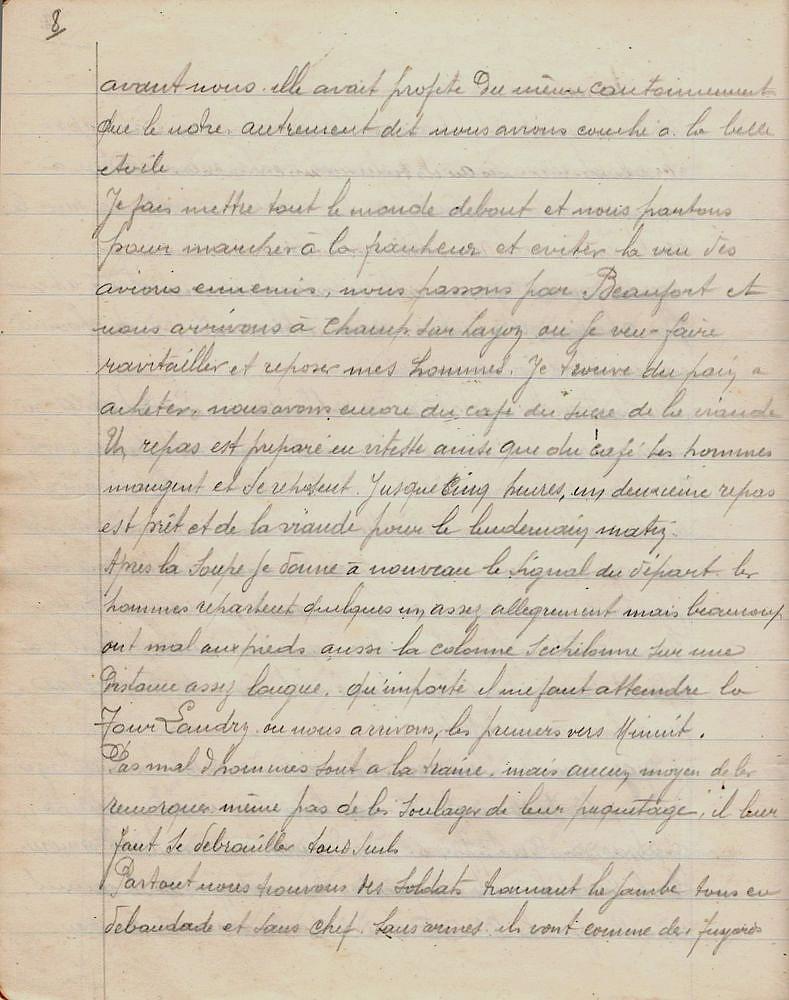 8
avant nous. elle avait profité du même cantonnement
que le notre. autrement dit nous avions couché a la belle
etoile
Je fais mettre tout le monde debout et nous partons
pour marcher à la fraicheur et eviter la vue des
avions ennemis, nous passons par Beaufort et
nous arrivons à Champ sur Layon ou je veu faire
ravitailler et reposer mes hommes. Je trouve du pain a
acheter. nous avons encore du café du sucre de la viande
Un repas est preparé en vitesse ainsi que du café les hommes
mangent et se reposent. Jusque Cinq heures, un deuxieme repas
est prêt et de la viande pour le lendemain matin.
Apres la Soupe je donne à nouveau le signal du départ. les
hommes repartent quelques un assez allegrement mais beaucoup
ont mal aux pieds aussi la colonne s'echelonne sur une
Distance assez longue. qu'importe il me faut atteindre la
Tour Landry ou nous arrivons, les premiers vers Minuit.
Pas mal d'hommes sont a la traine. mais aucun moyen de les
remorquer même pas de les soulager de leur paquetage, il leur
faut se debrouiller tous seuls
Partout nous trouvons des soldats trainant la jambe tous en
debandade et sans chef. Sans armes. ils vont comme des fuyards